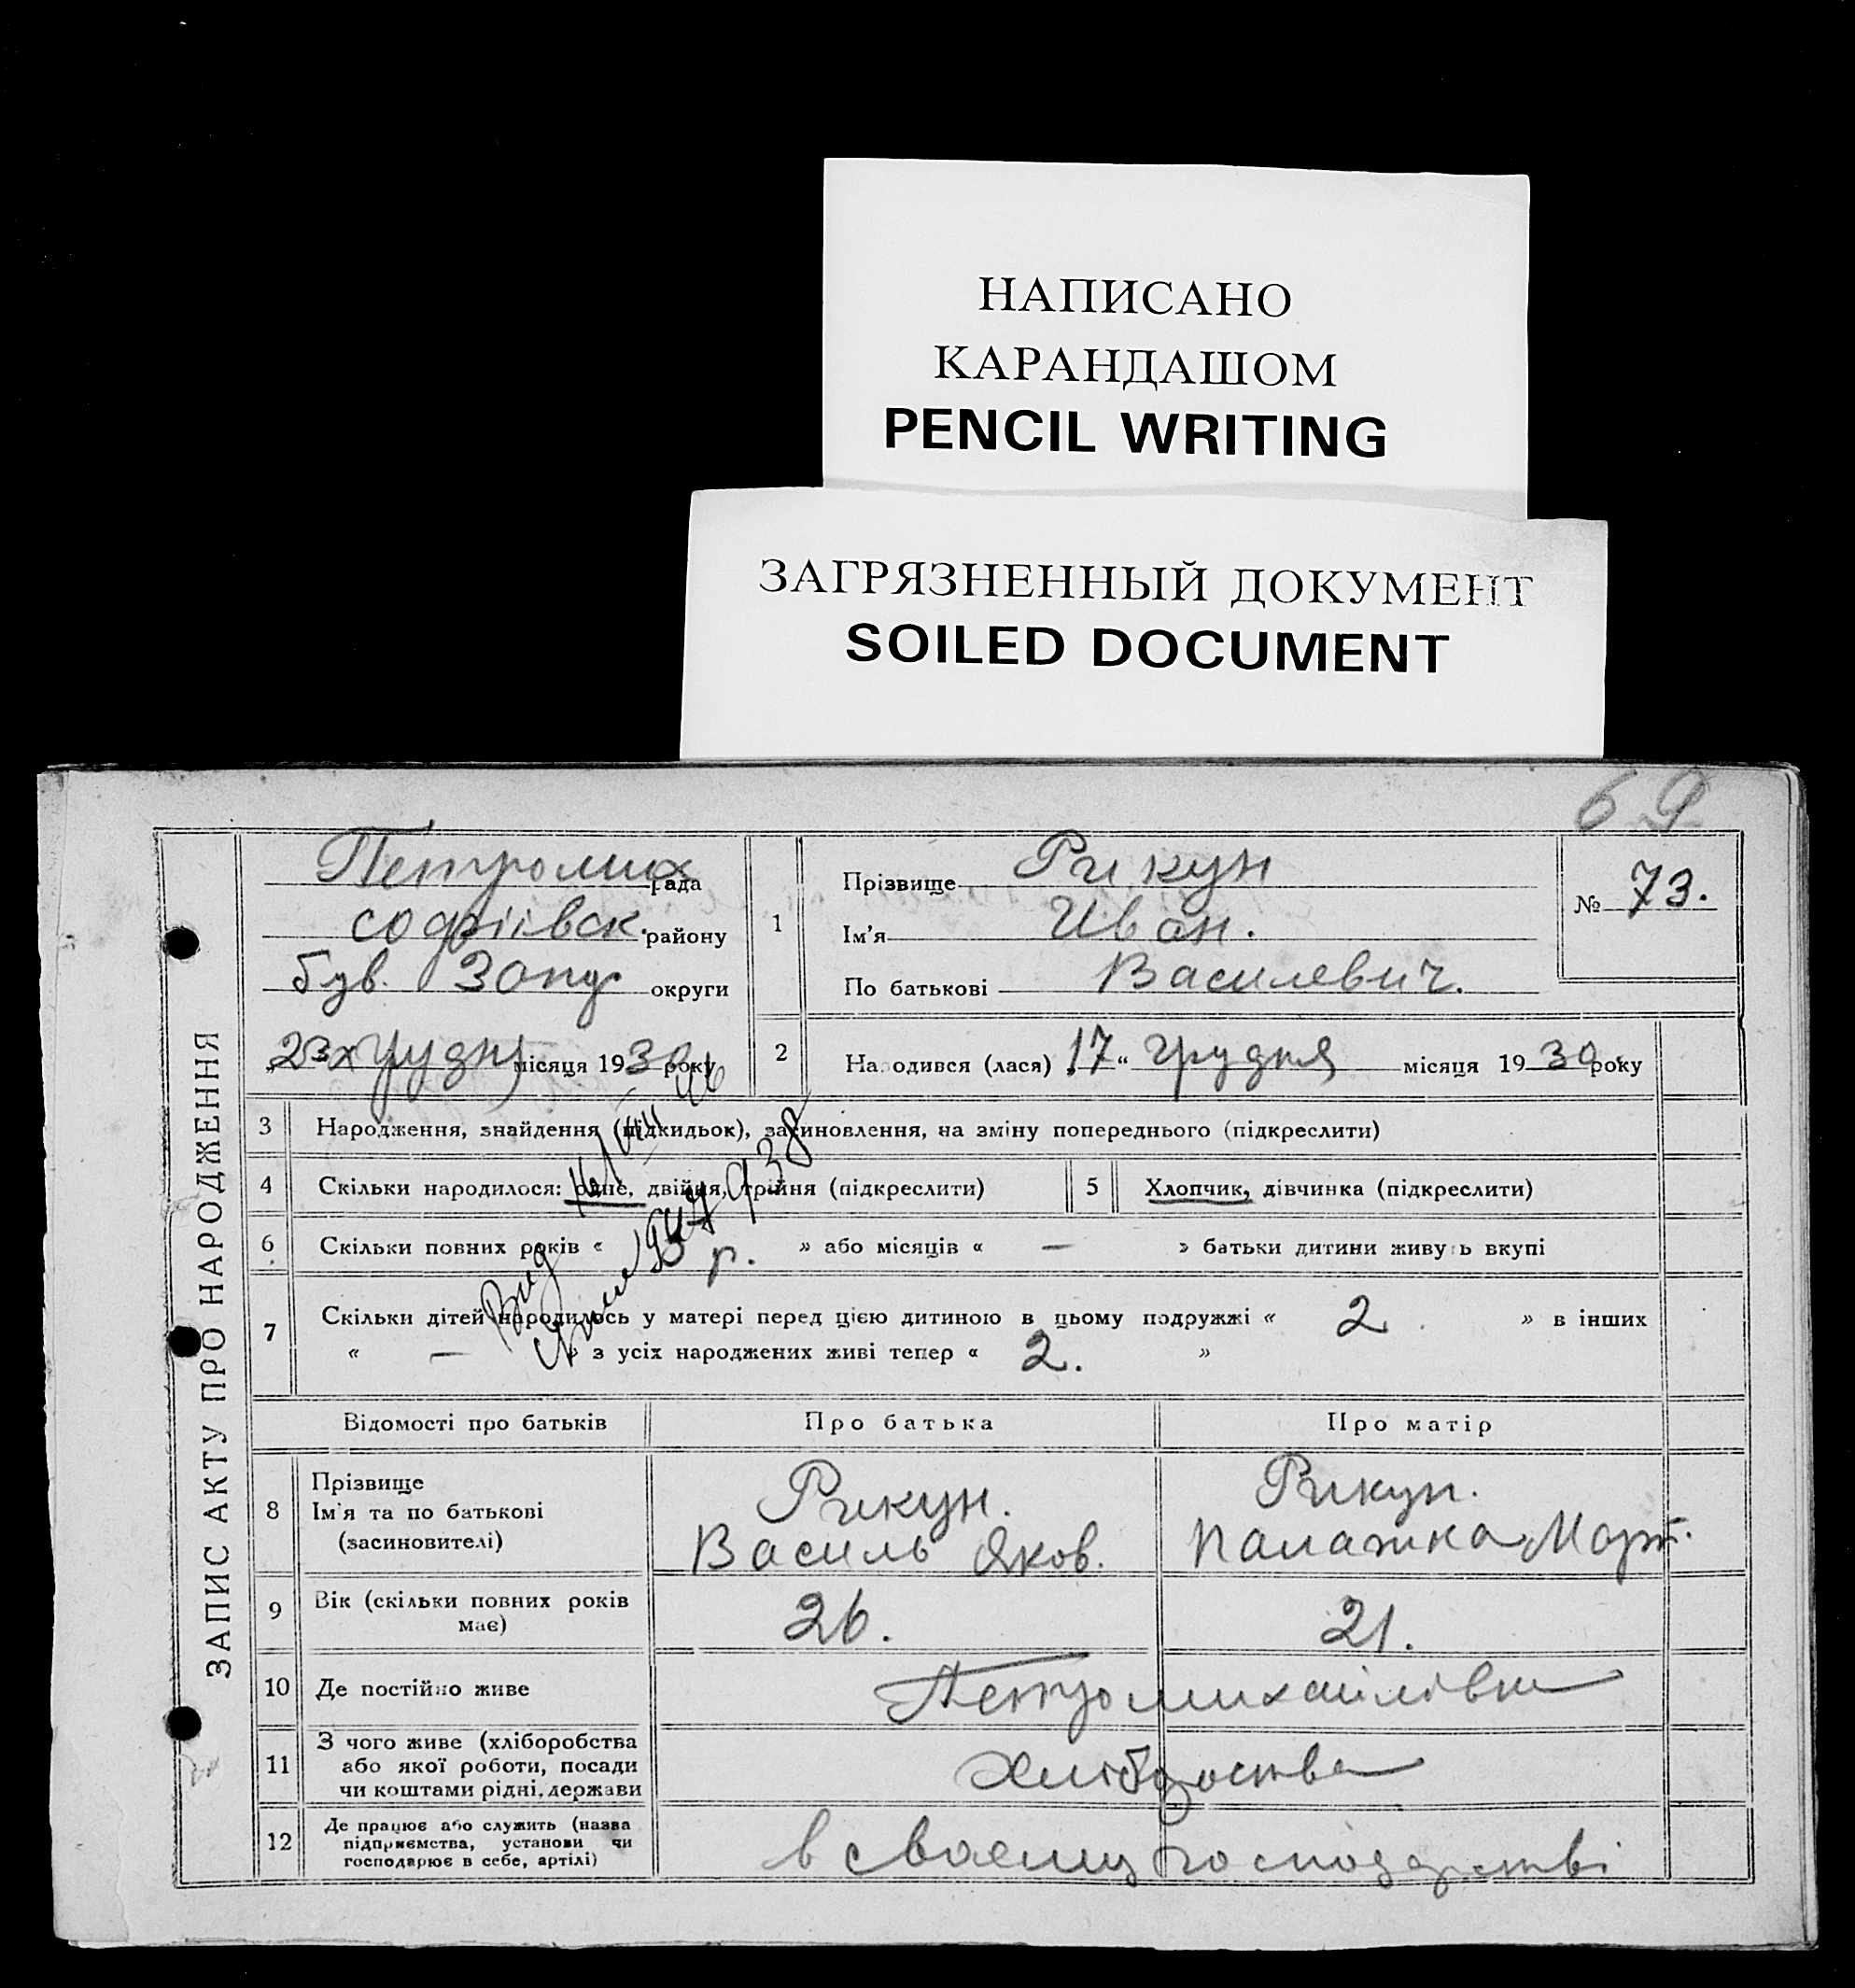 НАПИСАНО
КАРАНДАШОМ
PENCIL WRITING
ЗАГРЯЗНЕННЫЙ ДОКУМЕНТ
SOILED DOCUMENT
69
ЗАПИС АКТУ ПРО НАРОДЖЕННЯ
Петромих рада
софіївск. району
був. Запор округи
„23" грудня місяця 1930 року
1 Прізвище Рикун
Ім'я Иван.
По батькові Василевич.
№ 73.
2 Народився (лася) „17" грудня місяця 1930 року
3 Народження, знайдення (підкидьок), засиновлення, на зміну попереднього (підкреслити)
4 Скільки народилося: одне, двійня, трійня (підкреслити)
5 Хлопчик, дівчинка (підкреслити)
6 Скільки повних років « р. » або місяців « — » батьки дитини живуть вкупі
7 Скільки дітей народилось у матері перед цією дитиною в цьому подружжі « 2 . » в інших
« — » з усіх народжених живі тепер « 2. »
Відомості про батьків Про батька Про матір
8 Прізвище
Ім'я та по батькові
(засиновителі)
Рикун.
Василь Яков.
Рикун.
Палажка Март.
9 Вік (скільки повних років
має)
26. 21.
10 Де постійно живе Петромихайлівка
11 З чого живе (хліборобства
або якої роботи, посади
чи коштами рідні, держави
Хліборобства
12 Де працює або служить (назва
підприємства, установи чи
господарює в себе, артілі)
в своему господарстві